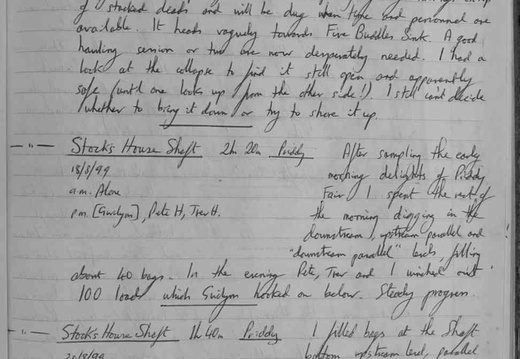 of stacked deads and will be dug when time and personnel are
available. It heads vaguely towards Five Buddles Sink. A good
hauling session or two are now desperately needed. I had a
look at the collapse to find it still open and apparently
safe (until one looks up from the other side!). I still can't decide
whether to bring it down or try to shore it up.
— " — Stock's House Shaft 2h 20m Priddy After sampling the early
18/8/99 morning delights of Priddy
a.m. Alone Fair I spent the rest of
p.m. [Gwilym], Pete H, Trev H. the morning digging in the
downstream, upstream parallel and
"downstream parallel" levels, filling
about 40 bags. In the evening Pete, Trev and I winched out
100 loads which Gwilym hooked on below. Steady progress
— " — Stock's House Shaft 1h 40m Priddy I filled bags at the Shaft
20/8/99 bottom upstream level, parallel